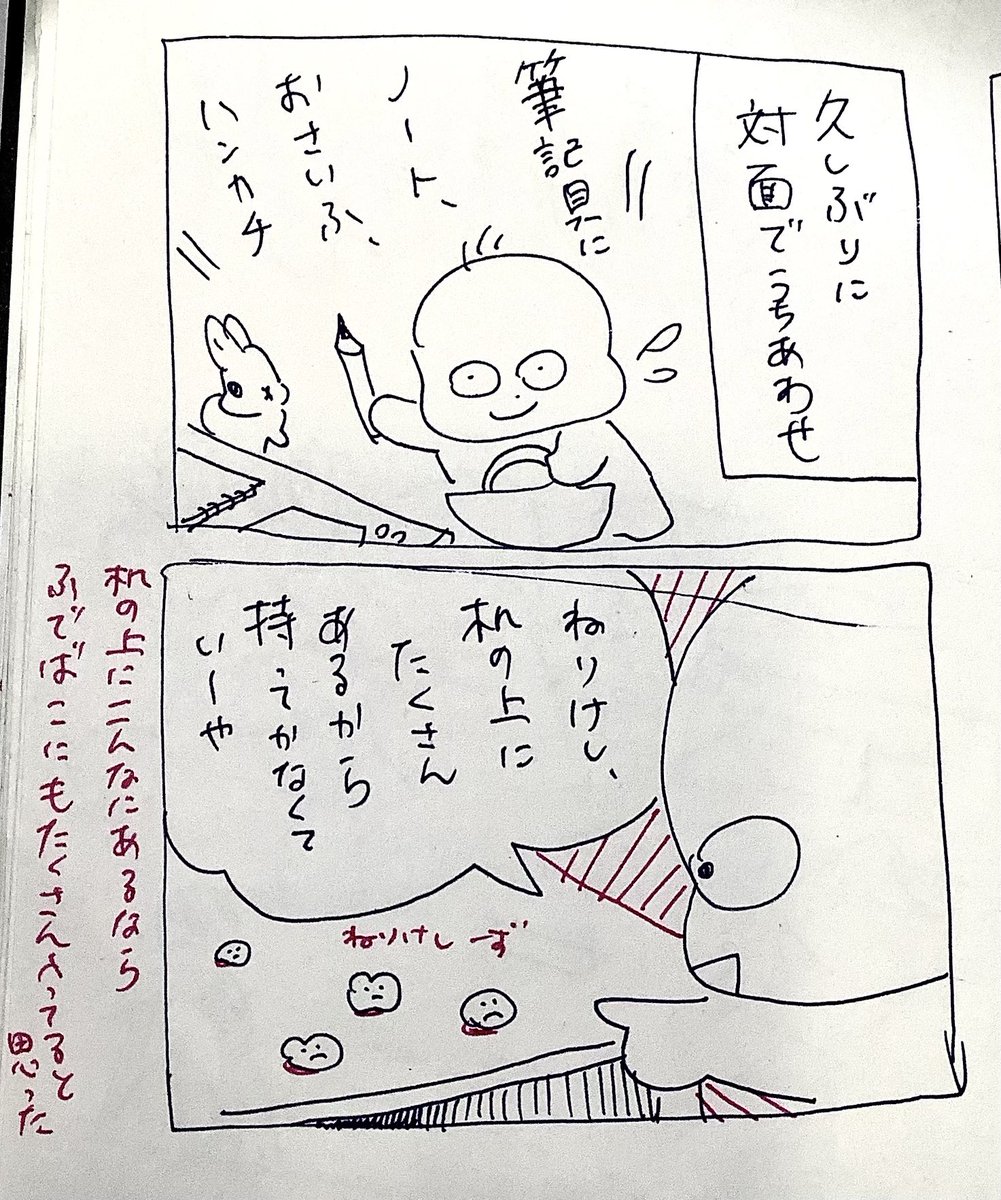 久しぶりに
対面でうちあわせ
筆記具に
ノート、
おさいふ、
ハンカチ
ねりけし、
机の上に
たくさん
あるから
持ってかなくて
いーや
ねりけしーず
机の上にこんなにあるなら
ふでばこにもたくさん入ってると
思った